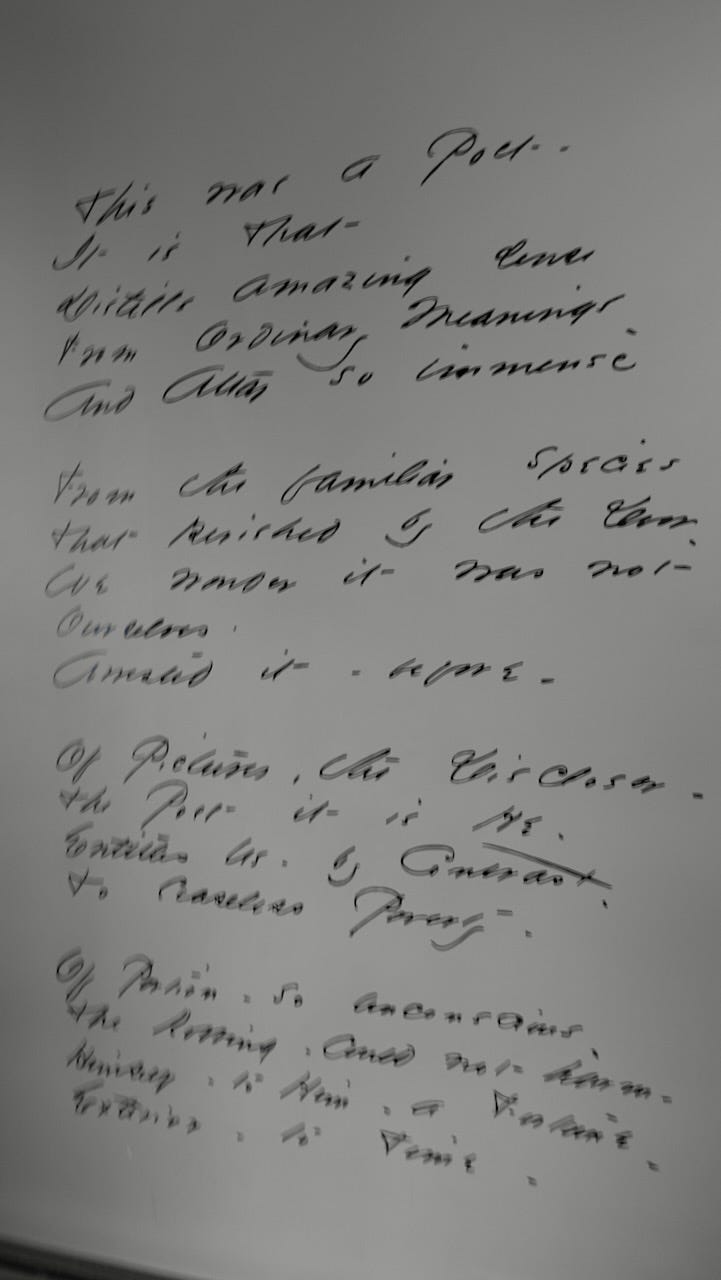 This was a Poet - -
It is That -
Distills amazing sense
From Ordinary Meanings
And Attar so immense
From the familiar species
That perished by the Door -
We wonder it was not
Ourselves
Arrested it - before -
Of Pictures, the Discloser -
The Poet - it is He -
Entitles Us - by Contrast -
To ceaseless Poverty -
Of Portion - so unconscious -
The Robbing - could not harm -
Himself - to Him - a Fortune -
Exterior - to Time -